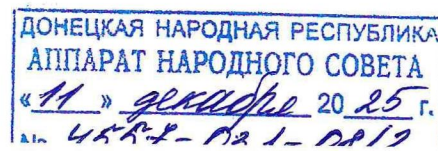 ДОНЕЦКАЯ НАРОДНАЯ РЕСПУБЛИКА
АППАРАТ НАРОДНОГО СОВЕТА
«11» декабря 2025 г.
№